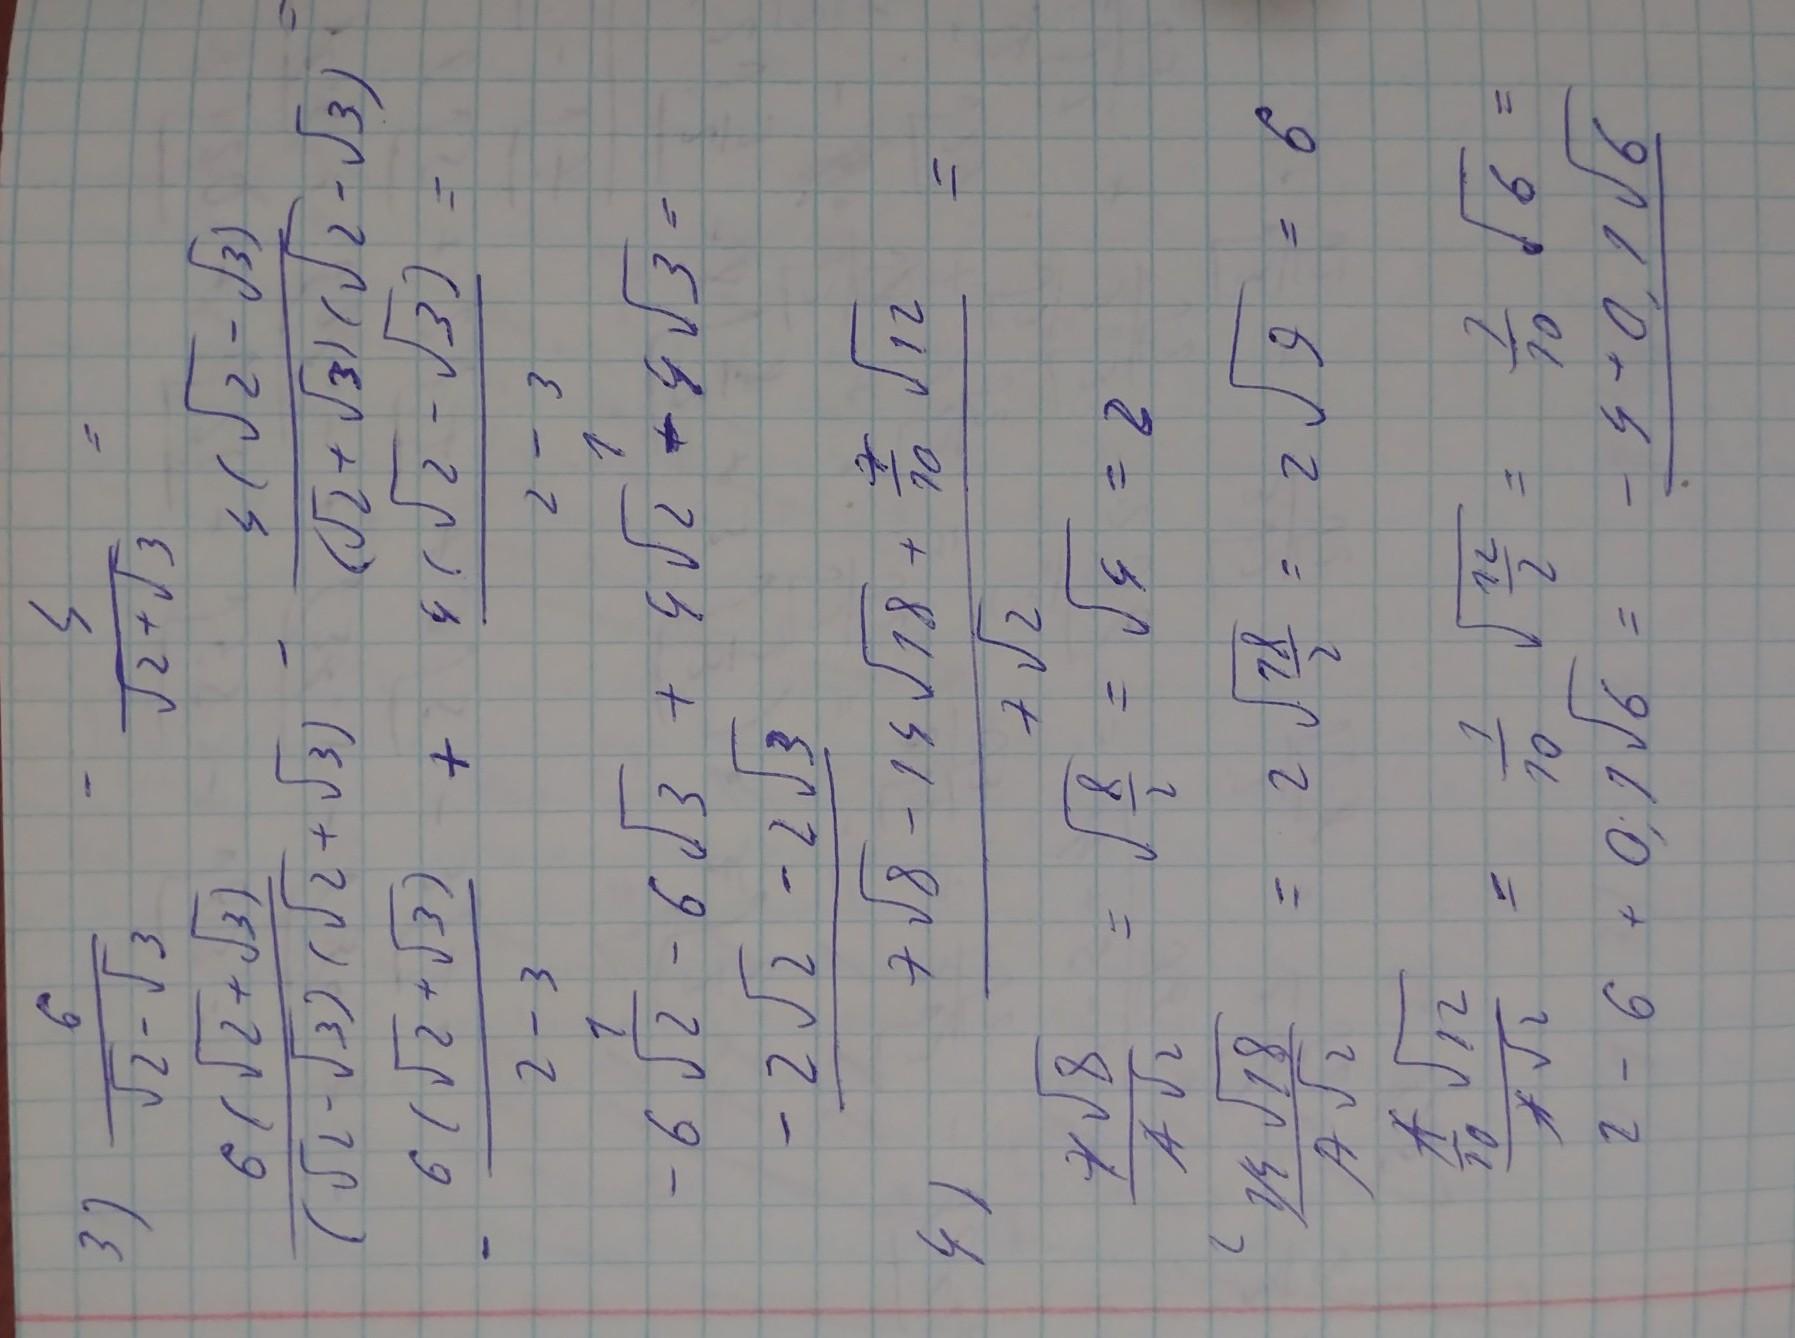 3) 6/(√2 - √3) - 4/(√2 + √3) =
6(√2 + √3)/((√2 - √3)(√2 + √3)) - 4(√2 - √3)/((√2 + √3)(√2 - √3)) =
- 6(√2 + √3)/(2 - 3) + 4(√2 - √3)/(2 - 3) =
1 1
- 6√2 - 6√3 + 4√2 + 4√3 =
- 2√2 - 2√3
4) (7√8 - 14√18 + 7/10 √12)/(7√2) =
7√8/(7√2) = √(8/2) = √4 = 2
2
14√18/(7√2) = 2√(18/2) = 2√9 = 6
(7/10 √12)/(7√2) = 1/10 √(12/2) = 1/10 √6 =
2 - 6 + 0,1√6 = - 4 + 0,1√6